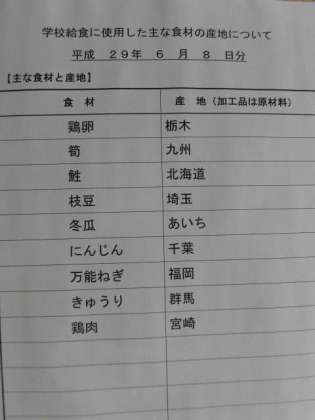 学校給食に使用した主な食材の産地について
平成 29年 6 月 8 日分
【主な食材と産地】
食 材 産 地（加工品は原材料）
鶏卵 栃木
筍 九州
鮭 北海道
枝豆 埼玉
冬瓜 あいち
にんじん 千葉
万能ねぎ 福岡
きゅうり 群馬
鶏肉 宮崎